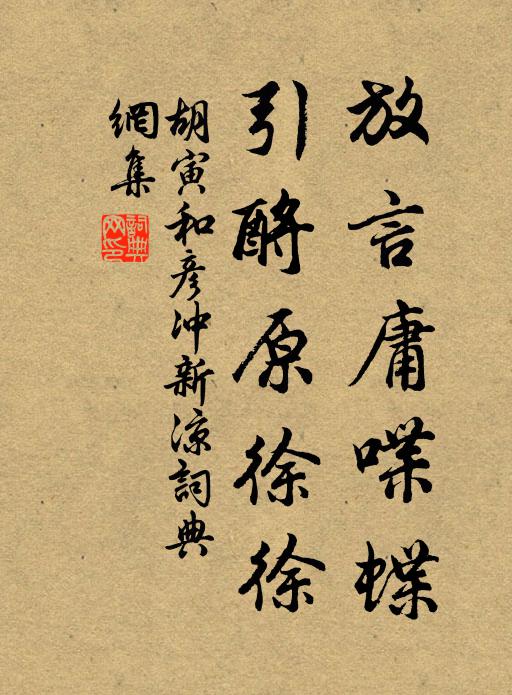 放言庸喋蝶
引酹原徐徐
胡寅和彦冲新涼詞典
網集
詞典网印